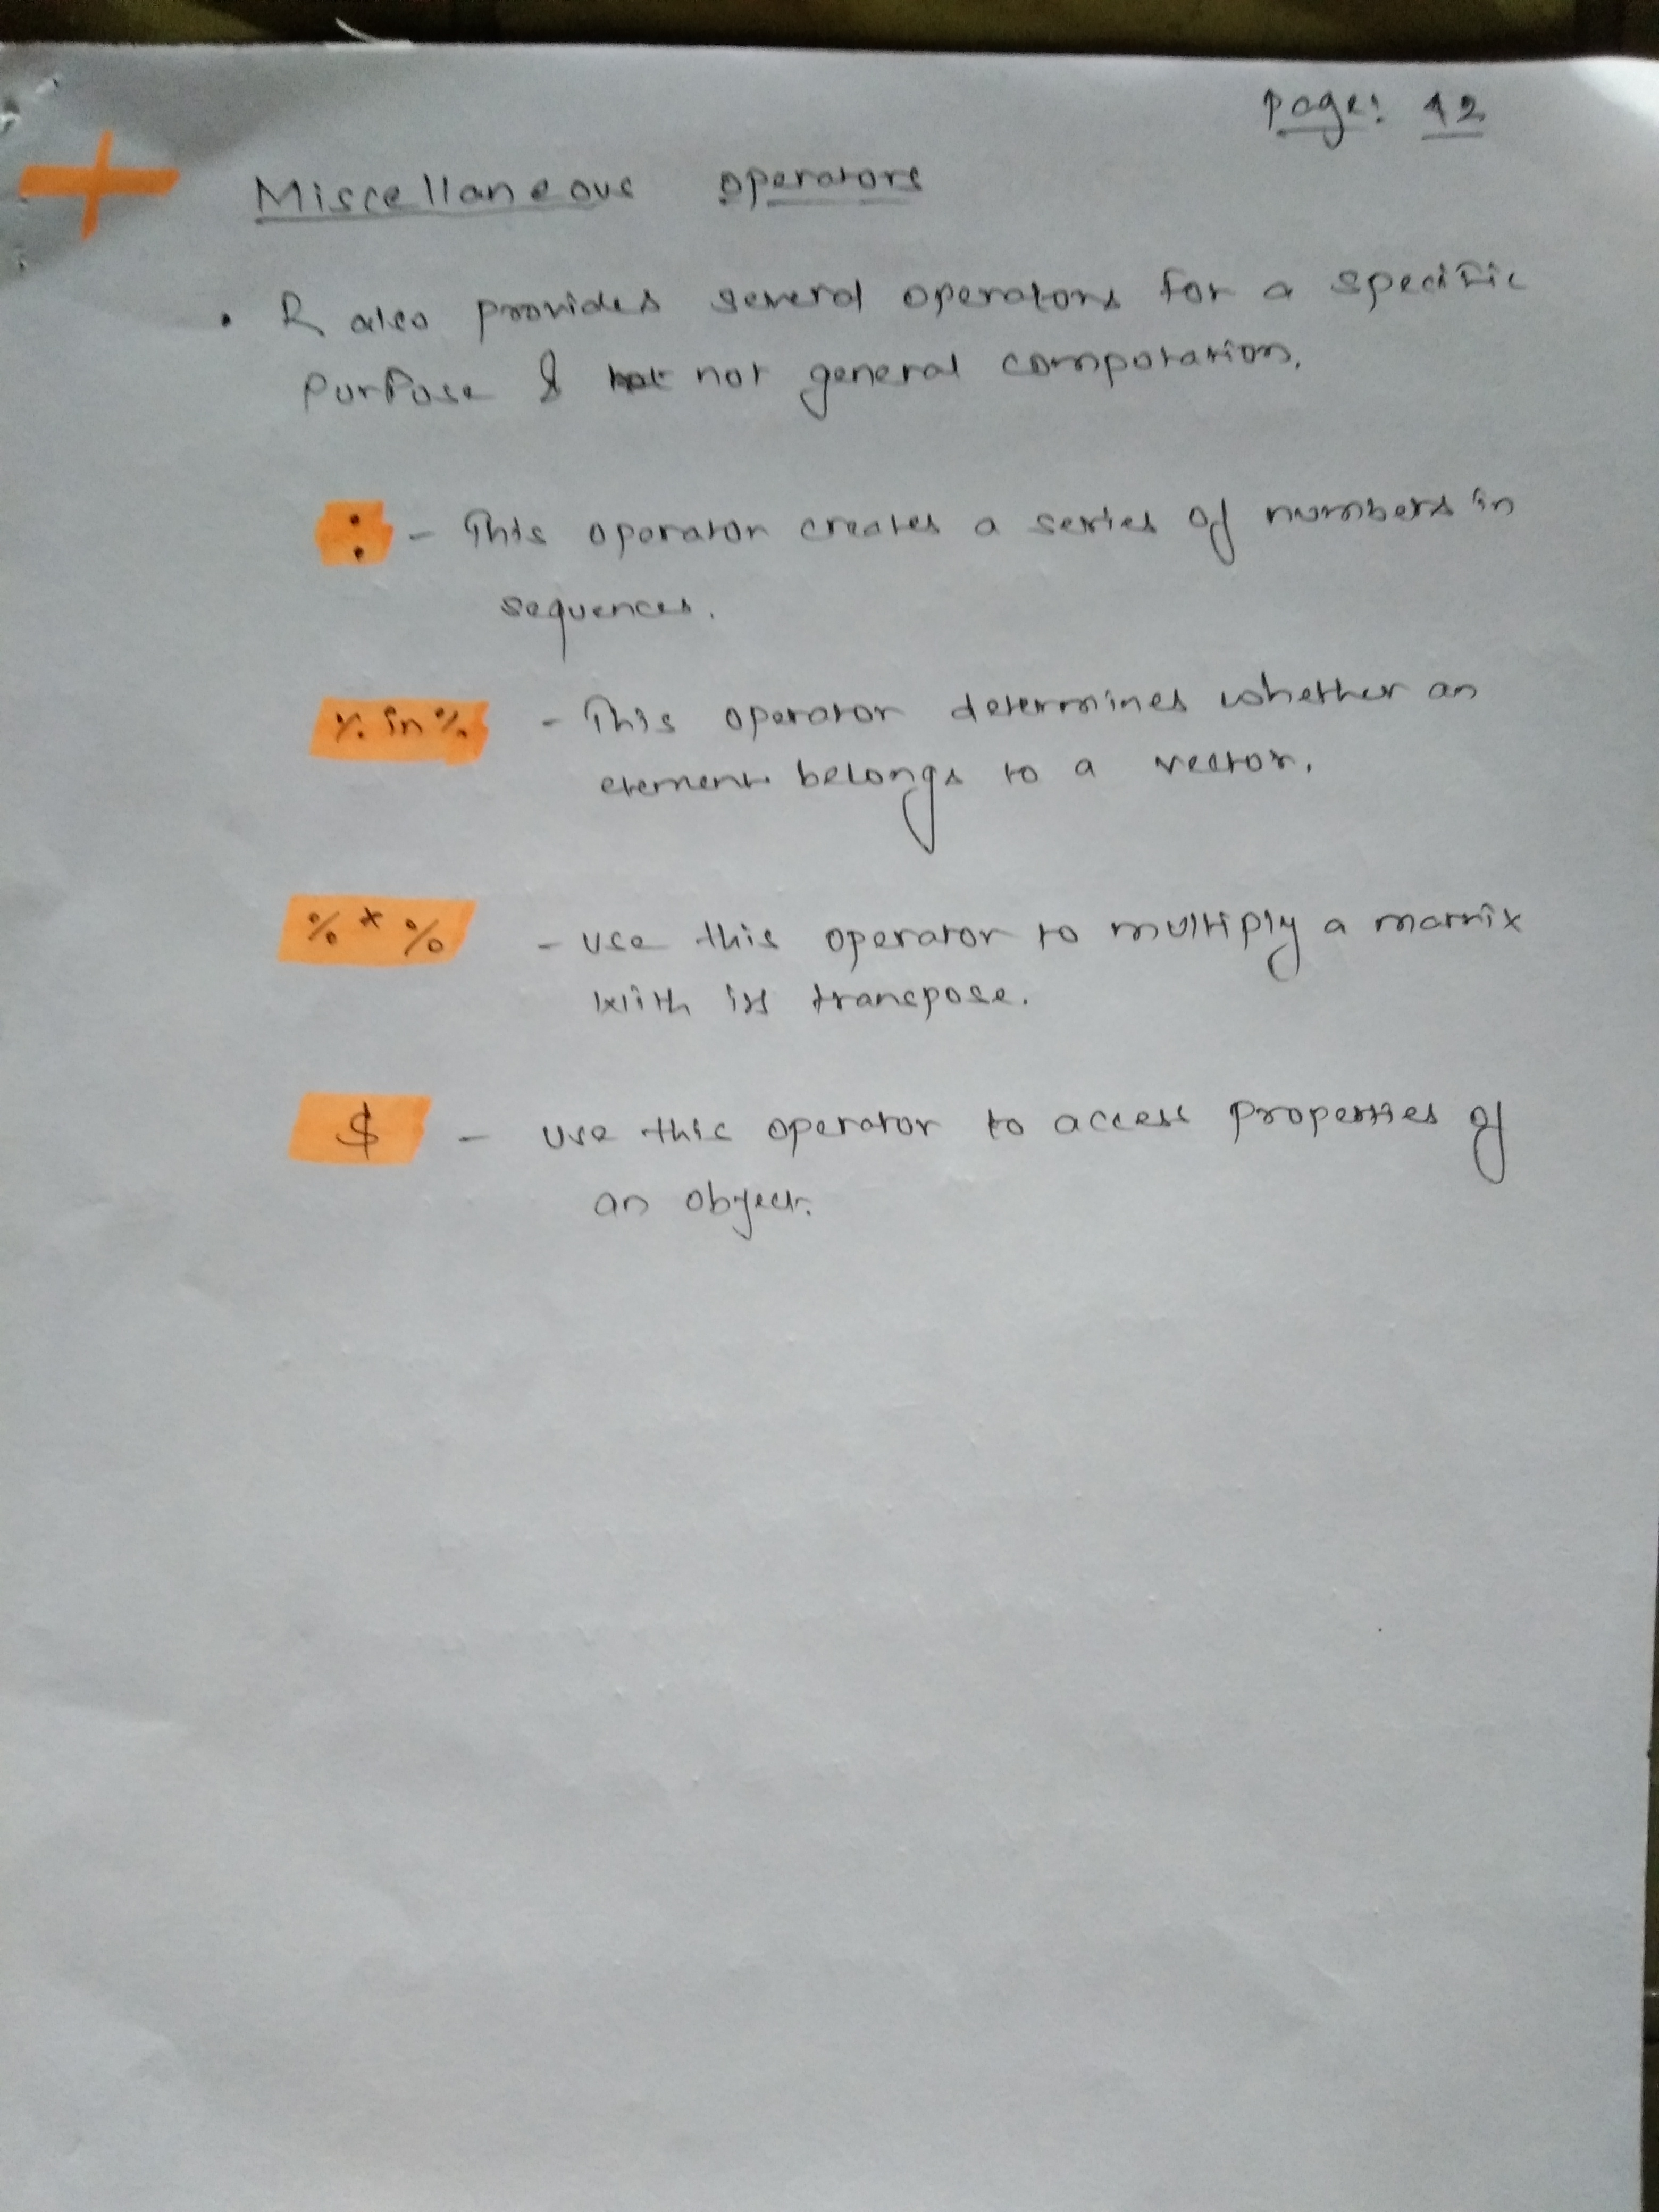 Page: 12
Miscellaneous operators
• R also provides several operators for a specific
purpose & not general computation.
: - This operator creates a series of numbers in
sequences.
% in % - This operator determines whether an
element belongs to a vector.
% * % - use this operator to multiply a matrix
with its transpose.
$ - use this operator to access properties of
an object.